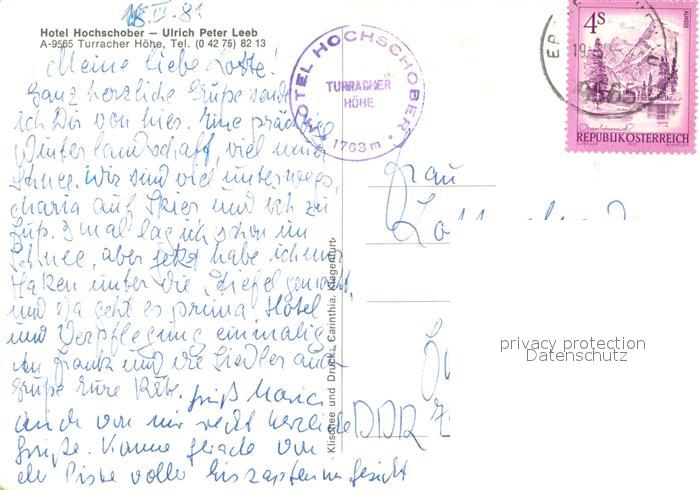 18.III.81
Hotel Hochschober – Ulrich Peter Leeb
A-9565 Turracher Höhe, Tel. (0 42 75) 82 13
HOTEL HOCHSCHOBER
TURRACHER
HÖHE
1763 m
4S
REPUBLIK ÖSTERREICH
9565
Meine liebe Lotte!
Ganz herzliche Grüße sende
ich Dir von hier. Eine prächtige
Winterlandschaft, viel
Schnee. Wir sind viel unterwegs,
Maria auf Skier und ich zu
Fuß. 3 mal lag ich schon im
Schnee, aber jetzt habe ich mir
Haken unter die Stiefel gemacht,
und da geht es prima. Hotel
und Verpflegung einmalig.
An Frank und die Siedler auch
Grüße Eure Käte.
Maria
auch von mir recht herzliche
Grüße. Komme gerade von
der Piste voller Eiszapfen im Gesicht
Klischee und Druck: Carinthia, Klagenfurt
Frau
DDR
privacy protection
Datenschutz